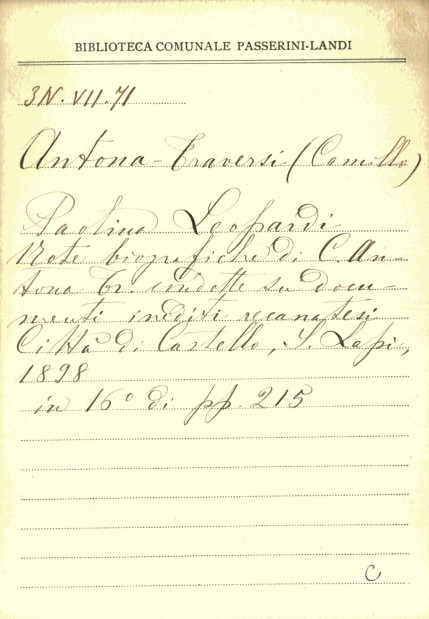 BIBLIOTECA COMUNALE PASSERINI-LANDI
3N.VII.71
Antona-Traversi (Camillo)
Paolina Leopardi
Note biografiche di C. An-
tona Tr. condotte su docu-
menti inediti recanatesi
Città di Castello, S. Lapi,
1898
in 16° di pp. 215
C